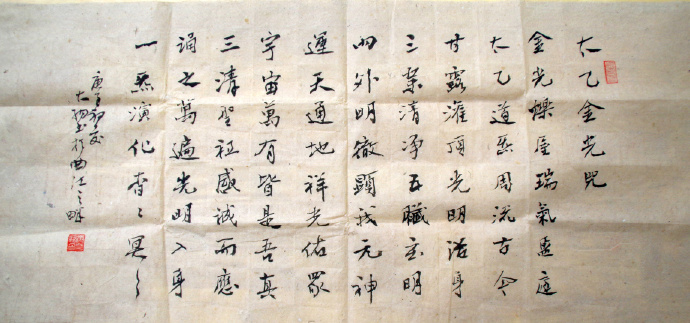 太乙金光咒
金光爍屋瑞氣盈庭
太乙道炁周流古今
甘露灌頂光明浴身
三業清淨五臟玄明
內外明徹顯我元神
運天通地祥光佑眾
宇宙萬有皆是吾真
三清聖祖感誠而應
誦之萬遍光明入身
一炁演化杳々冥々
庚子初夏
大書於曲江之畔